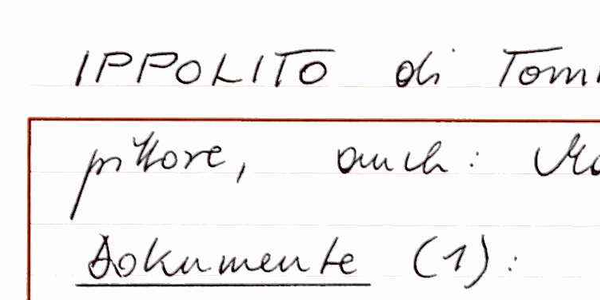 IPPOLITO di Tom
pittore, auch:
Dokumente (1):